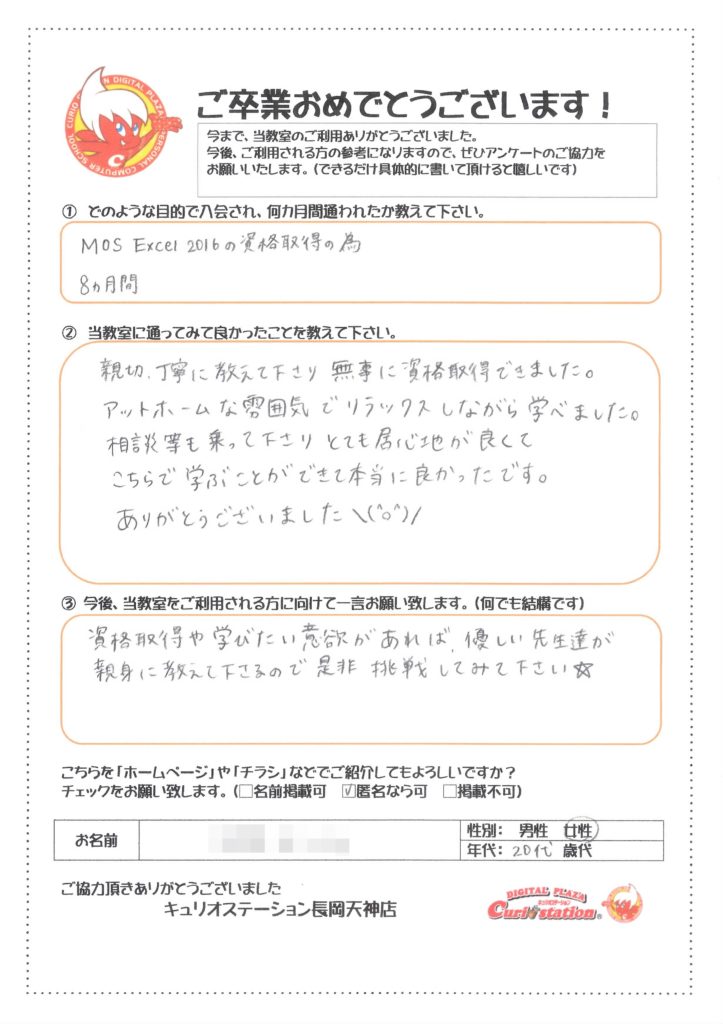 CURIO STATION DIGITAL PLAZA PERSONAL COMPUTER SCHOOL
ご卒業おめでとうございます！
今まで、当教室のご利用ありがとうございました。
今後、ご利用される方の参考になりますので、ぜひアンケートのご協力を
お願いいたします。（できるだけ具体的に書いて頂けると嬉しいです）
① どのような目的で入会され、何カ月間通われたか教えて下さい。
MOS Excel 2016の資格取得の為
8ヵ月間
② 当教室に通ってみて良かったことを教えて下さい。
親切、丁寧に教えて下さり 無事に資格取得できました。
アットホームな雰囲気でリラックスしながら学べました。
相談等も乗って下さり とても居心地が良くて
こちらで学ぶことができて本当に良かったです。
ありがとうございました＼(^o^)／
③ 今後、当教室をご利用される方に向けて一言お願い致します。（何でも結構です）
資格取得や学びたい意欲があれば、優しい先生達が
親身に教えて下さるので是非 挑戦してみて下さい☆
こちらを「ホームページ」や「チラシ」などでご紹介してもよろしいですか？
チェックをお願い致します。（□名前掲載可 ☑匿名なら可 □掲載不可）
お名前
性別： 男性 女性
年代： 20代 歳代
ご協力頂きありがとうございました
キュリオステーション長岡天神店
DIGITAL PLAZA
キュリオステーション
Curio station®